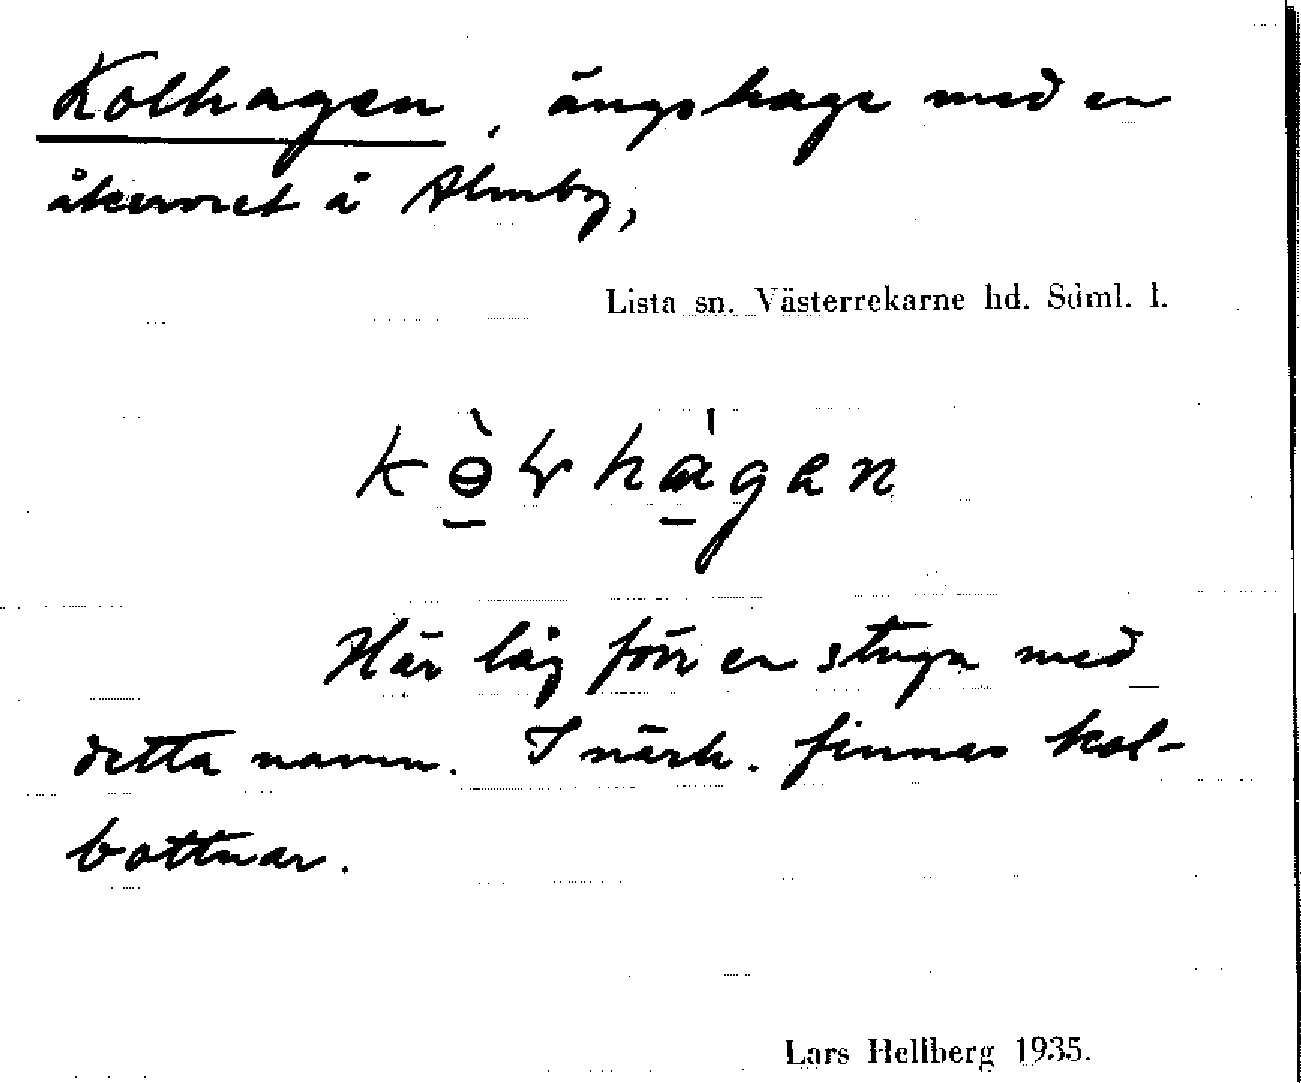 Kolhagen, ängshage med en
åkervret å Almby,
Lista sn. Västerrekarne hd. Sdml. l.
Här låg förr en stuga med
detta namn. I närh. finnas kol-
bottnar.
Lars Hellberg 1935.